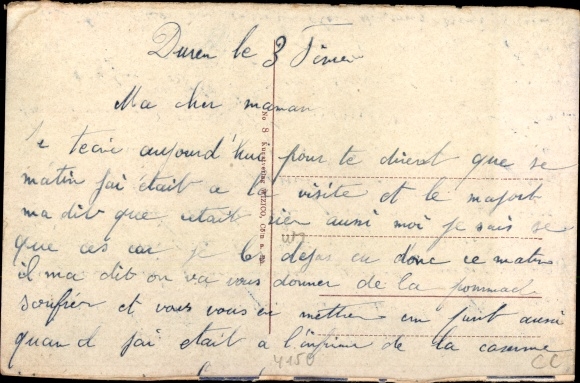 Duren le 3
Ma cher maman
Je tecris aujourd'hui pour te dirent que se
matin jai était a la visite et le majort
ma dit que cetait rien aussi moi je sais se
que ces car je l dejas eu donc ce matin
il ma dit on va vous donner de la pommade
soufrér et vous vous en mettrer un point aussi
quand jai était a l'infirmi de la caserne
No 8
Cöln a. Rh.
4150
CC